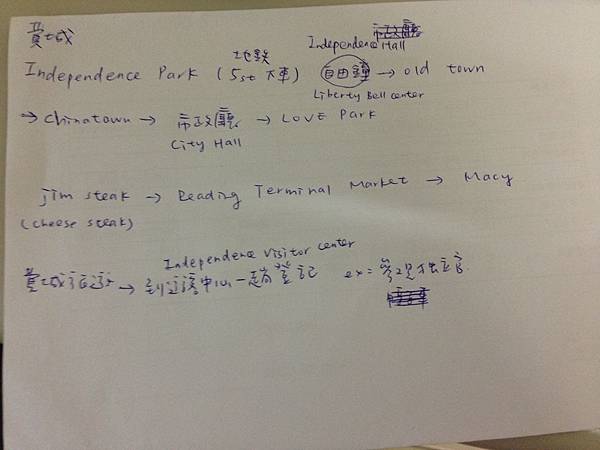 費城
地鐵 Independence Hall
Independence Park (5st 下車) 自由鐘 → old town
Liberty Bell center
→ Chinatown → 市政廳 → LOVE Park
City Hall
jim steak → Reading Terminal Market → Macy
(cheese steak)
Independence Visitor center
費城 → 到遊客中心 一趟 登記 ex: 參觀獨立宮